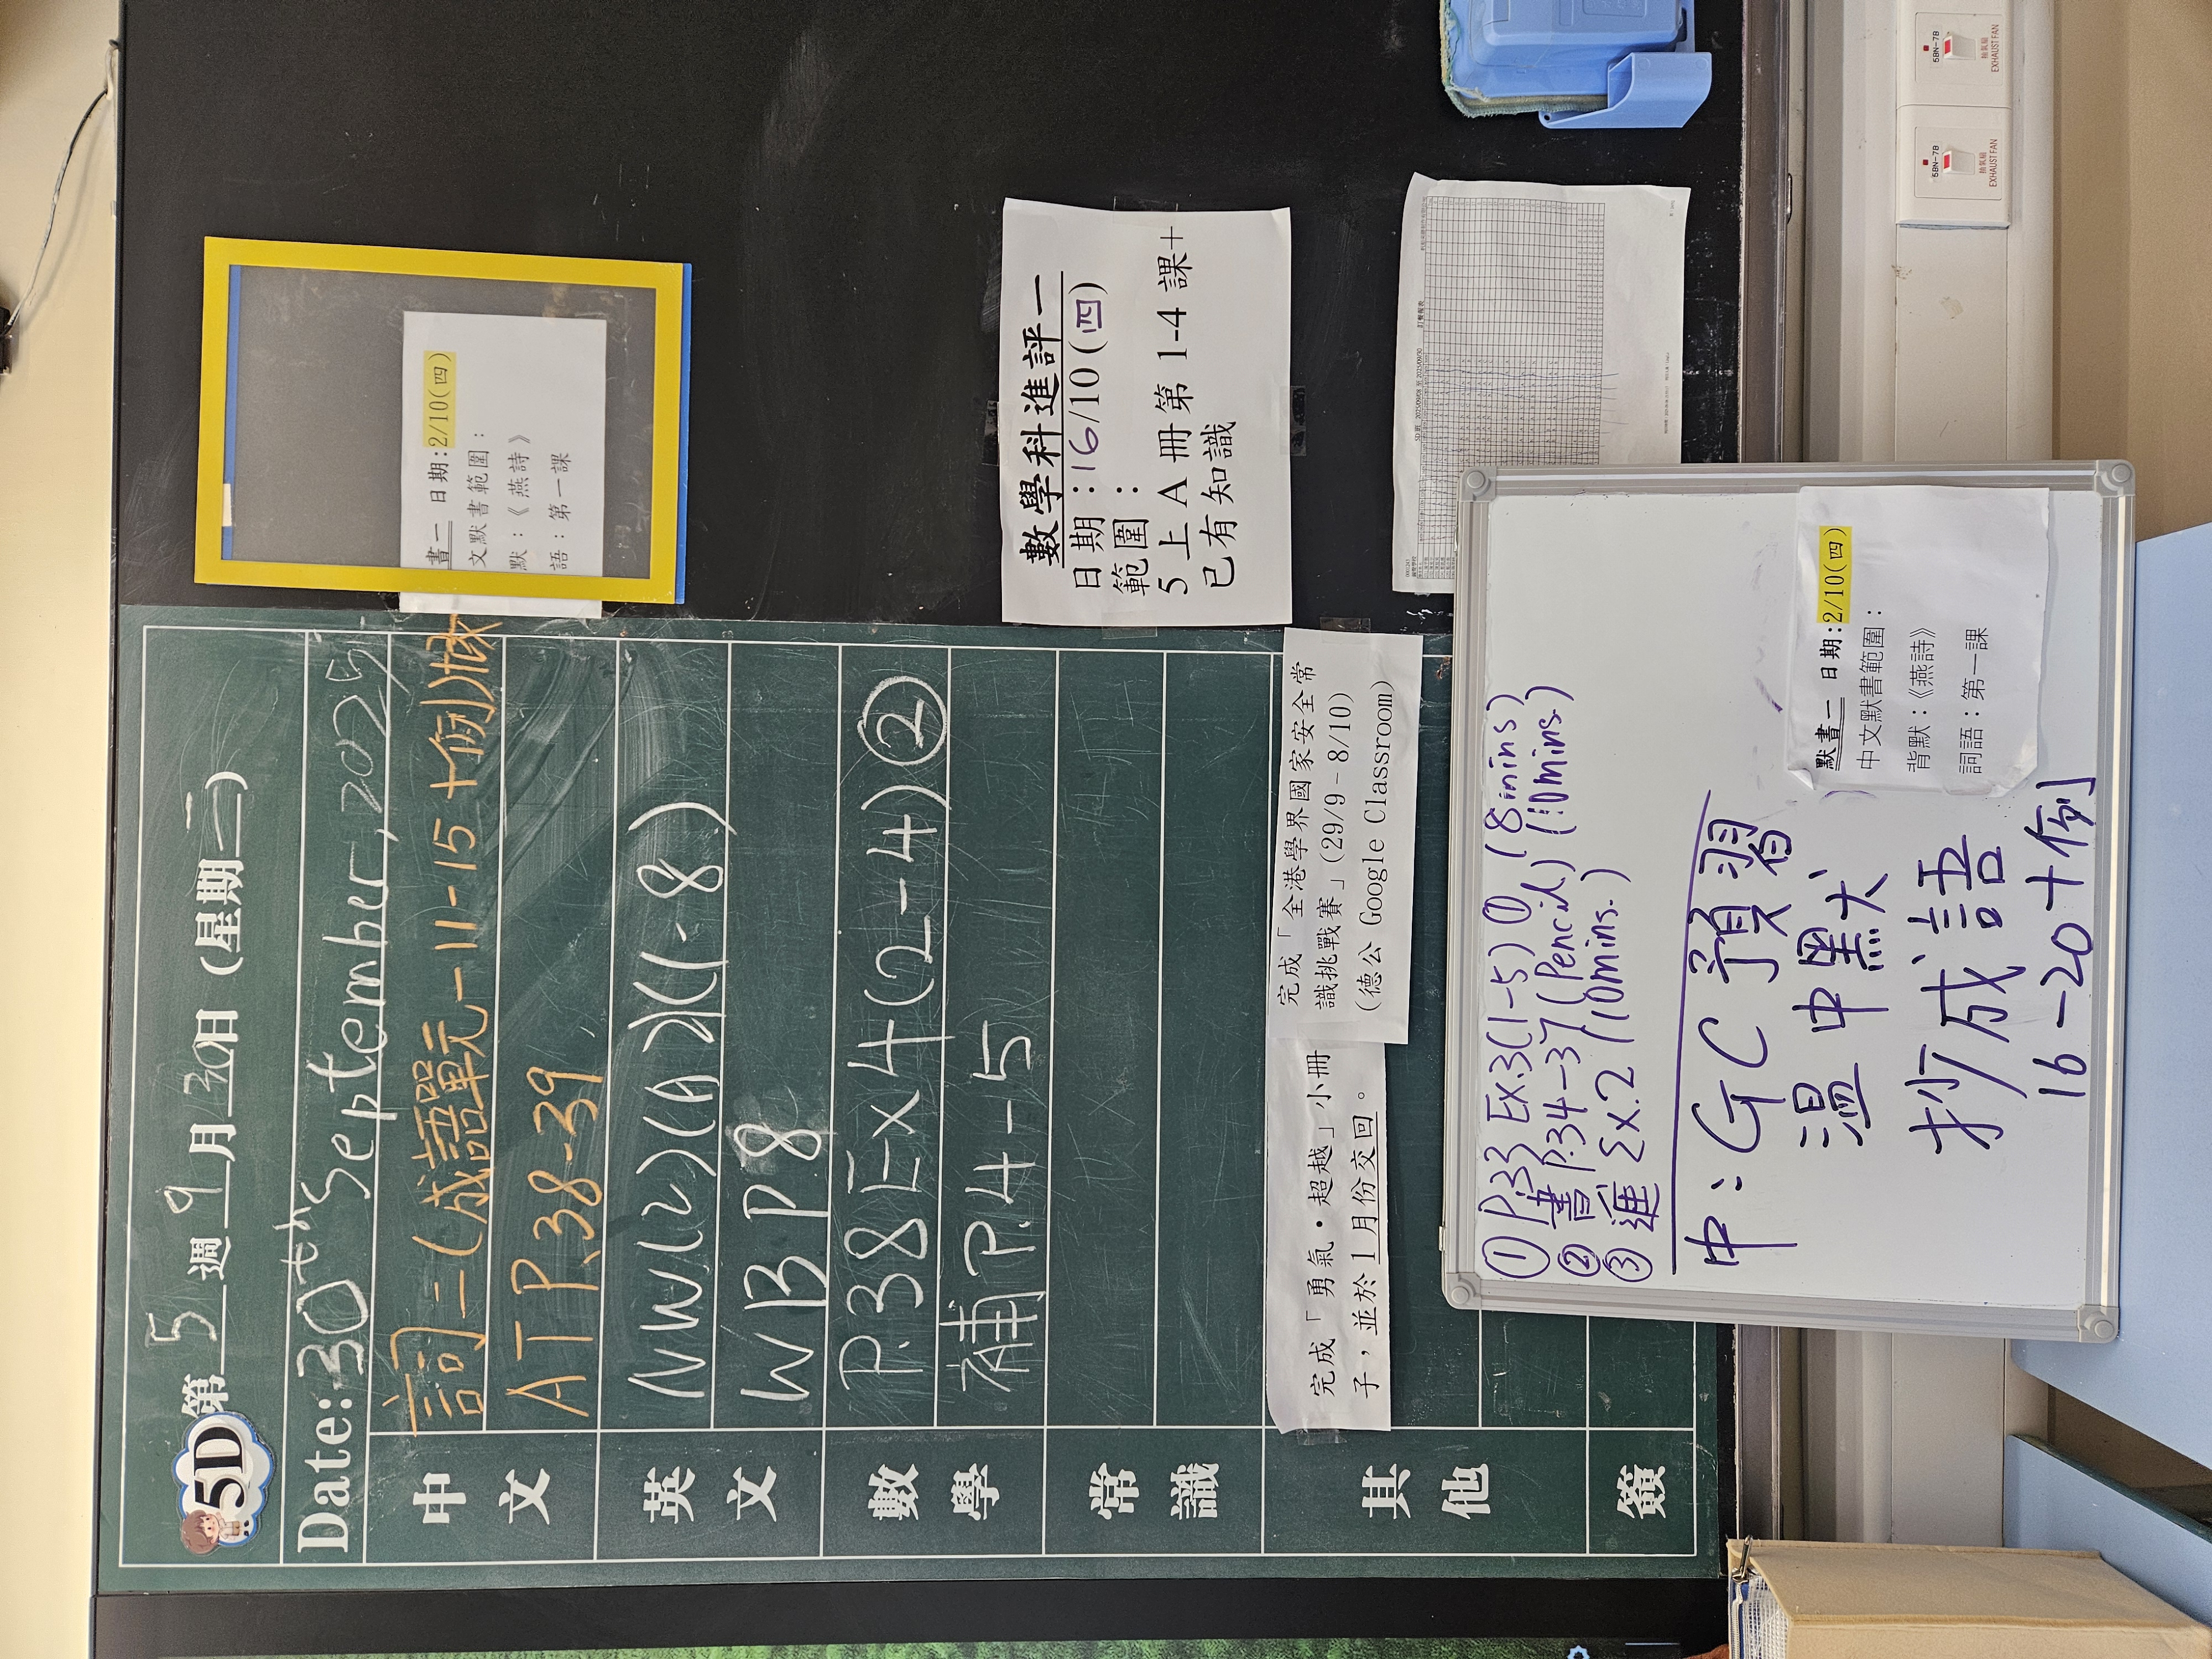 5D 第 5 週 9 月 30 日 (星期二)
Date: 30th September, 2025
中文
詞二(成語單元一 11-15 十例)
AT P.38-39
英文
NW(2)(A2)(1-8)
WB P.8
數學
P.38 Ex4(2-4)②
補 P.4-5
常識
其他
完成「勇氣・超越」小冊
子，並於 1 月份交回。
完成「全港學界國家安全常
識挑戰賽」(29/9–8/10)
(德公 Google Classroom)
簽
書一 日期:2/10(四)
文默書範圍：
默：《燕詩》
語：第一課
數學科進評一
日期：16/10(四)
範圍：
5 上 A 冊第 1-4 課+
已有知識
① P.33 Ex.3(1-5) ① (8mins)
② 書 P.34-37 (Pencil) (10mins.)
③ 進 Ex.2 (10mins.)
中：GC 預習
溫中默
抄成語
16-20十例
默書一 日期:2/10(四)
中文默書範圍：
背默：《燕詩》
詞語：第一課
5BN-7B
抽氣扇
EXHAUST FAN
5BN-7B
抽氣扇
EXHAUST FAN